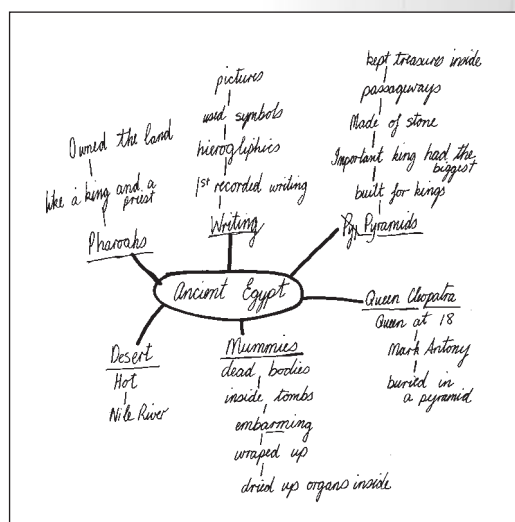 Ancient Egypt
Pharoahs
like a king and a
priest
Owned the land
Writing
1st recorded writing
hierogliphics
used symbols
pictures
Pyr Pyramids
built for kings
Important king had the
biggest
Made of stone
passageways
kept treasures inside
Queen Cleopatra
Queen at 18
Mark Antony
buried in
a pyramid
Mummies
dead bodies
inside tombs
embarming
wraped up
dried up organs inside
Desert
Hot
Nile River